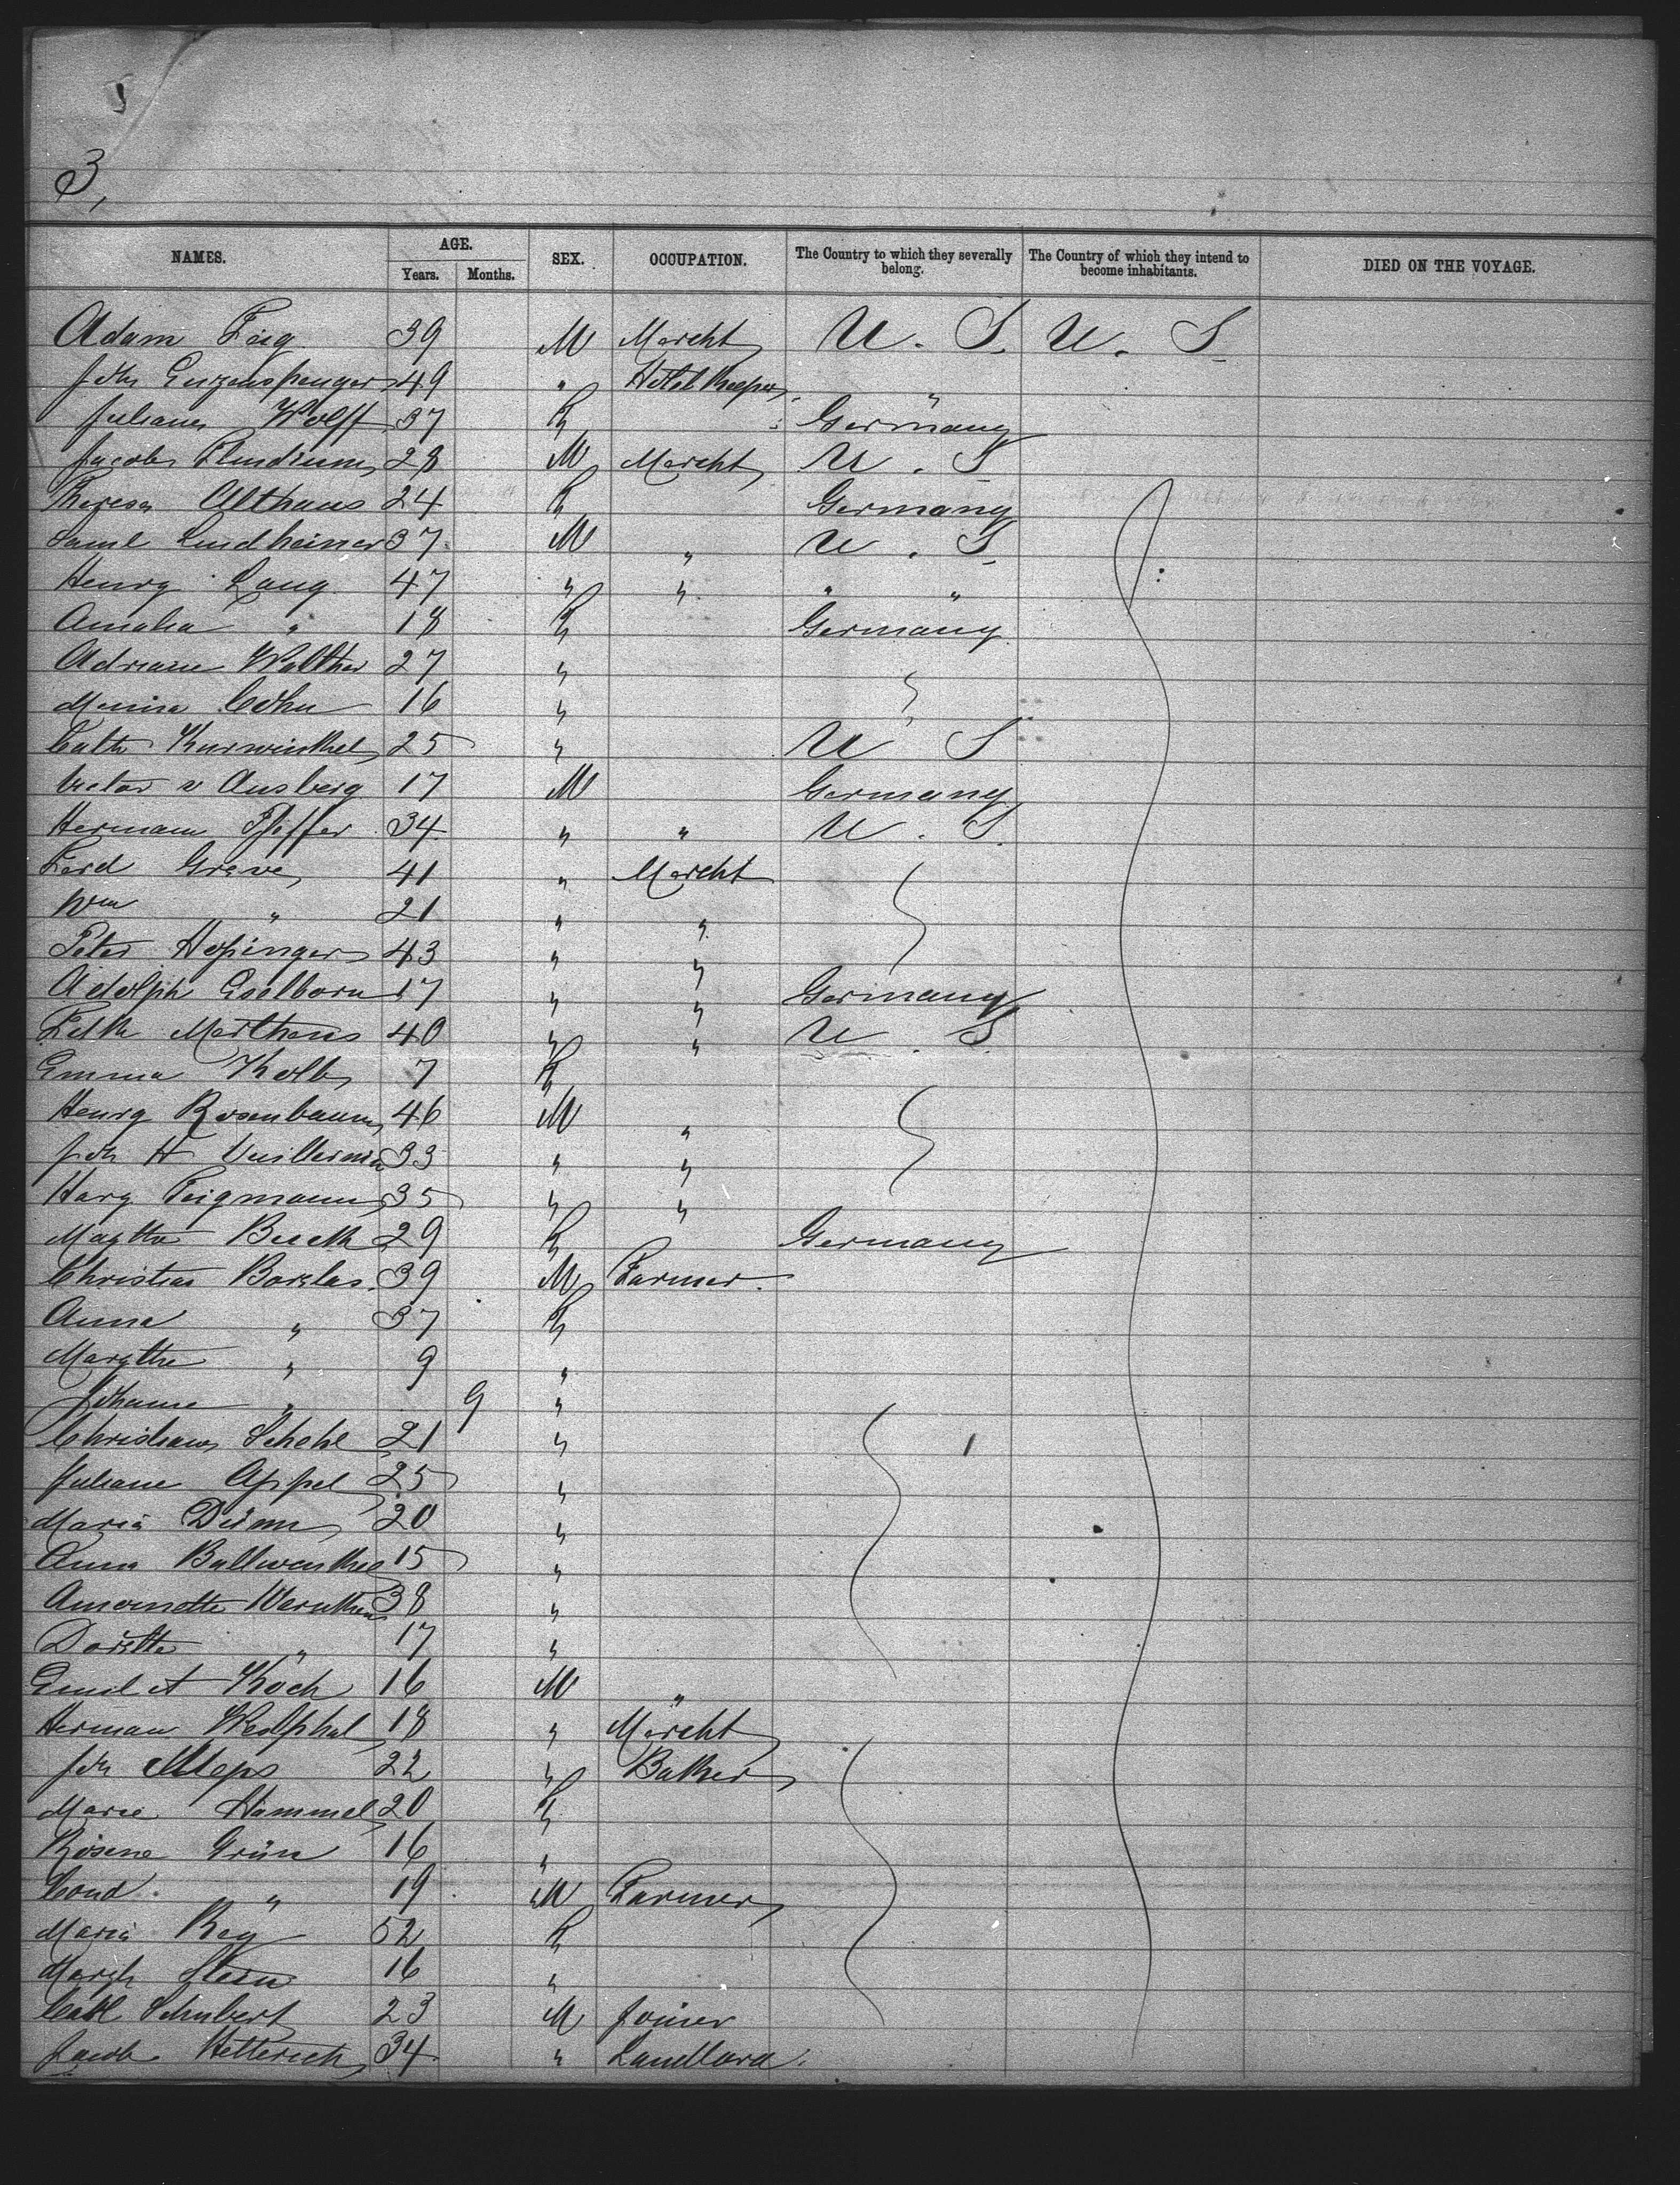 3,
NAMES. AGE. SEX. OCCUPATION. The Country to which they severally belong. The Country of which they intend to become inhabitants. DIED ON THE VOYAGE.
Years. Months.
Adam Feig 39 M Marcht U. S. U. S.
Joh 49 " Hotel Keeper "
Juliane Wolff 37 F Germany
Jacob 28 M Marcht U. S
Theresa Althaus 24 F Germany
Saml Lindheimer 37 M " U. S
Henry Lang 47 " " " "
Amalia " 18 F Germany
Adriane Walther 27 "
Minna Cohn 16 "
Cath 25 " U S
Victor v Ansberg 17 M Germany
Hermann Pfeffer 34 " " U. S.
Ferd Greve 41 " Marcht
Wm " 21 " "
Peter 43 " "
Adolph Eselborn 17 " " Germany
Marthens 40 " " U. S.
Emma Kolb 7 F
Henry Rosenbaum 46 M "
Joh H 33 " "
Hary Feigmann 35 " "
Magtha 29 F Germany
Christian 39 M Farmer
Anna " 37 F
Margthe " 9 "
Johanne " 9 "
Christiane 21 "
Juliane Appel 25 "
Maria 20 "
Anna 15 "
Antoinette 38 "
Dorette " 17 "
Emil A Koch 16 M "
Herman Westphal 18 " Marcht
Joh 22 " Baker
Marie Hammel 20 F
Rosine Grün 16 "
Cond. " 19 M Farmer
Maria Rey 52 F
Margh Stein 16 "
Carl Schubert 23 M Joiner
Jacob Hetterich 34 " Landlord.